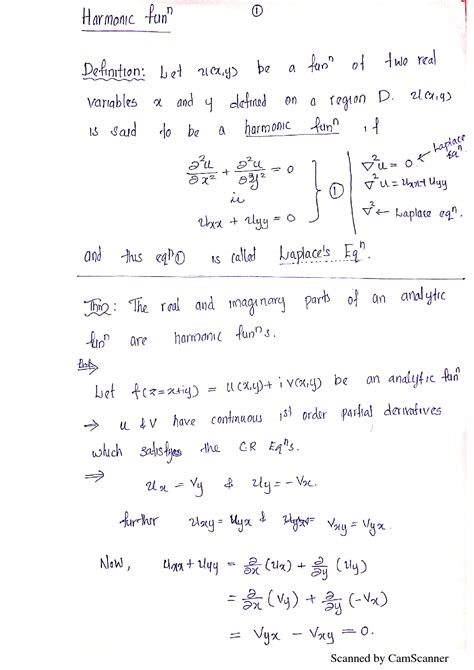 Harmonic funⁿ
①
Definition: Let u(x,y) be a funⁿ of two real
variables x and y defined on a region D. u(x,y)
is said to be a harmonic funⁿ if
∂²u/∂x² + ∂²u/∂y² = 0
ie
uxx + uyy = 0
①
∇²u = 0 ← Laplace eqⁿ.
∇²u = uxx + uyy
∇² ← Laplace eqⁿ.
and this eqⁿ① is called Laplace's Eqⁿ.
Thm: The real and imaginary parts of an analytic
funⁿ are harmonic funⁿs.
Proof
Let f(z=x+iy) = u(x,y)+ i v(x,y) be an analytic funⁿ
→ u & v have continuous 1st order partial derivatives
which satisfyes the CR Eqⁿs.
⇒
ux = vy & uy = -vx.
further uxy = uyx & vxy = vyx.
Now, uxx + uyy = ∂/∂x (ux) + ∂/∂y (uy)
= ∂/∂x (vy) + ∂/∂y (-vx)
= vyx - vxy = 0.
Scanned by CamScanner